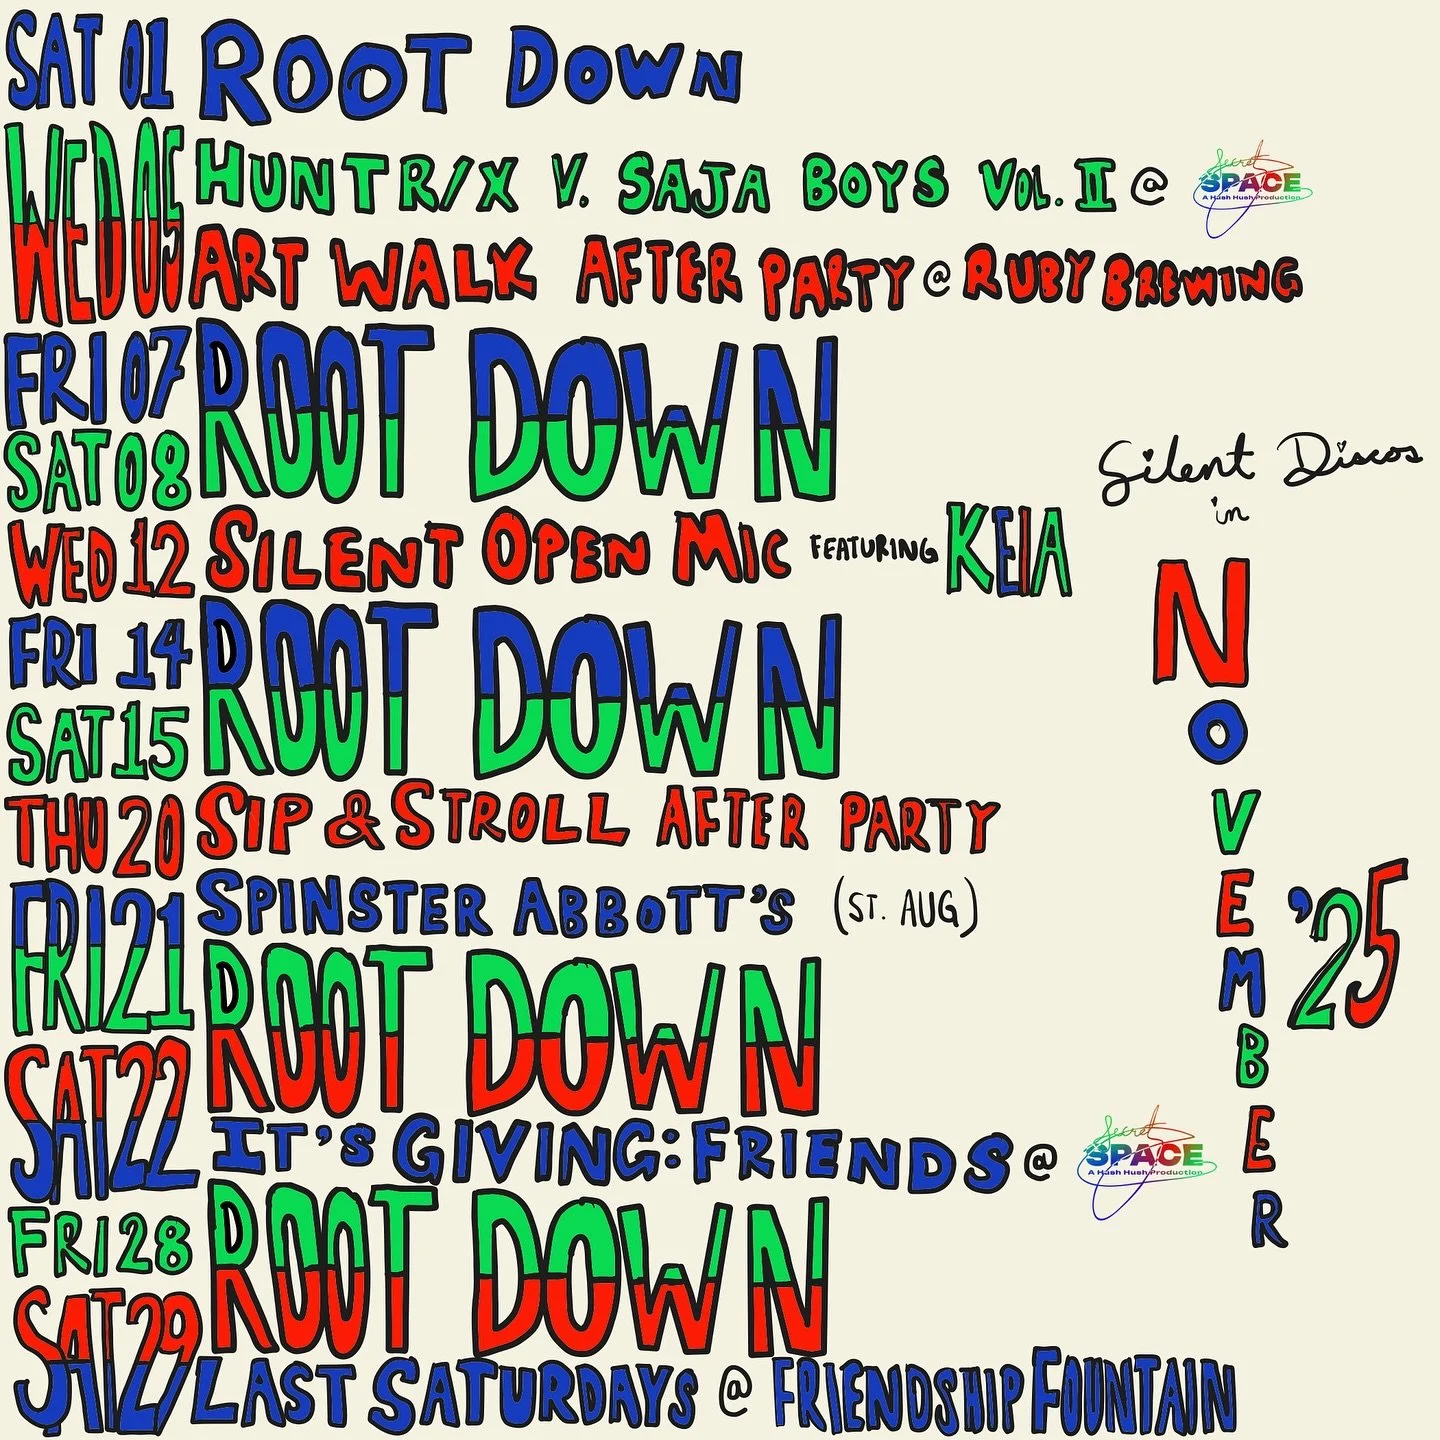 SAT 01 ROOT DOWN
WED 05 HUNTR/X V. SAJA BOYS VOL. II @ Secret SPACE A Hush Hush Production
ART WALK AFTER PARTY @ RUBY BREWING
FRI 07 ROOT DOWN
SAT 08
WED 12 SILENT OPEN MIC FEATURING KEIA
FRI 14 ROOT DOWN
SAT 15
THU 20 SIP & STROLL AFTER PARTY
FRI 21 SPINSTER ABBOTT'S (ST. AUG)
ROOT DOWN
SAT 22
IT'S GIVING: FRIENDS @ Secret SPACE A Hush Hush Production
FRI 28 ROOT DOWN
SAT 29
LAST SATURDAYS @ FRIENDSHIP FOUNTAIN
Silent Discos
in
NOVEMBER
'25